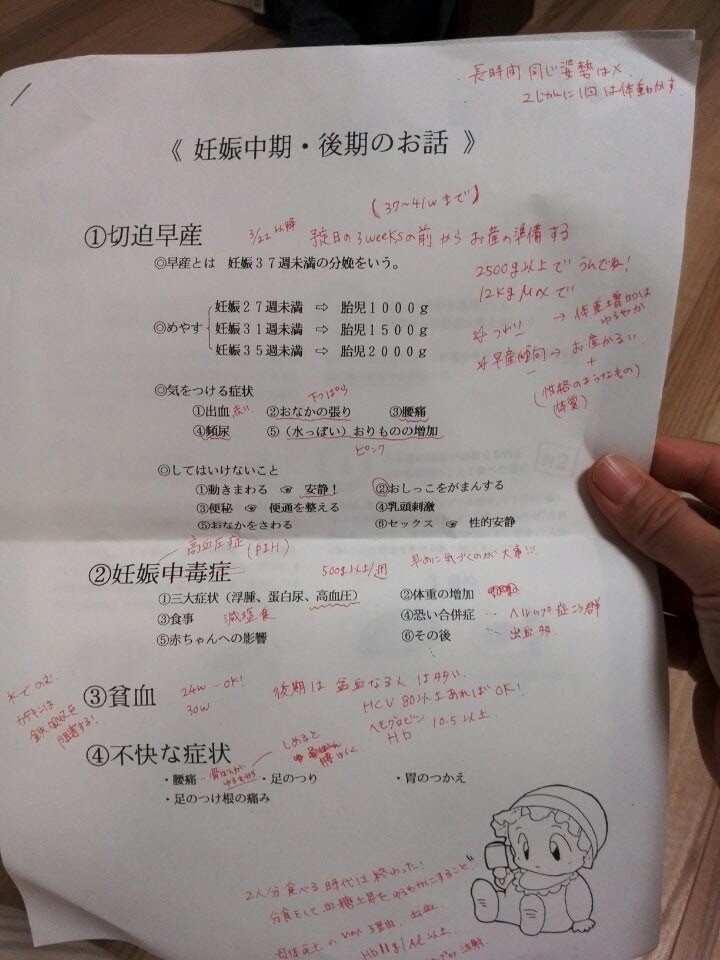 長時間 同じ姿勢は×
2じかんに1回は体動かす
《 妊娠中期・後期のお話 》
(37〜41wまで)
①切迫早産
3/22以降
予定日の3weeksの前からお産の準備する
◎早産とは 妊娠37週未満の分娩をいう。
2500g以上でうんでね!
12kg MAXで
→体重増加はゆるやか
◎めやす
妊娠27週未満 ⇨ 胎児1000g
妊娠31週未満 ⇨ 胎児1500g
妊娠35週未満 ⇨ 胎児2000g
早産傾向→お産かるい
+
(性格のようなもの)
(体質)
◎気をつける症状
下っぱら
①出血 ②おなかの張り ③腰痛
④頻尿 ⑤(水っぽい)おりものの増加
ピンク
◎してはいけないこと
①動きまわる ☞ 安静! ②おしっこをがまんする
③便秘 ☞ 便通を整える ④乳頭刺激
⑤おなかをさわる ⑥セックス ☞ 性的安静
高血圧症(PIH)
②妊娠中毒症
500g以上/週
早めに気づくのが大事!!!
①三大症状(浮腫、蛋白尿、高血圧) ②体重の増加
③食事 減塩食 ④恐い合併症 … ヘルップ症こう群
⑤赤ちゃんへの影響 ⑥その後 … 出血多
③貧血
24w…OK!
30w
後期は貧血なる人は多い
HCV 80以上あればOK!
ヘモグロビン
Hb 10.5以上
水でのむ
カテキンは
鉄吸収を
阻害する!
④不快な症状
しめると
・腰痛 ・足のつり ・胃のつかえ
・足のつけ根の痛み
2人分食べる時代は終わった!
分食をして血糖上昇をゆるやかにすること
Hb11g/dl以上